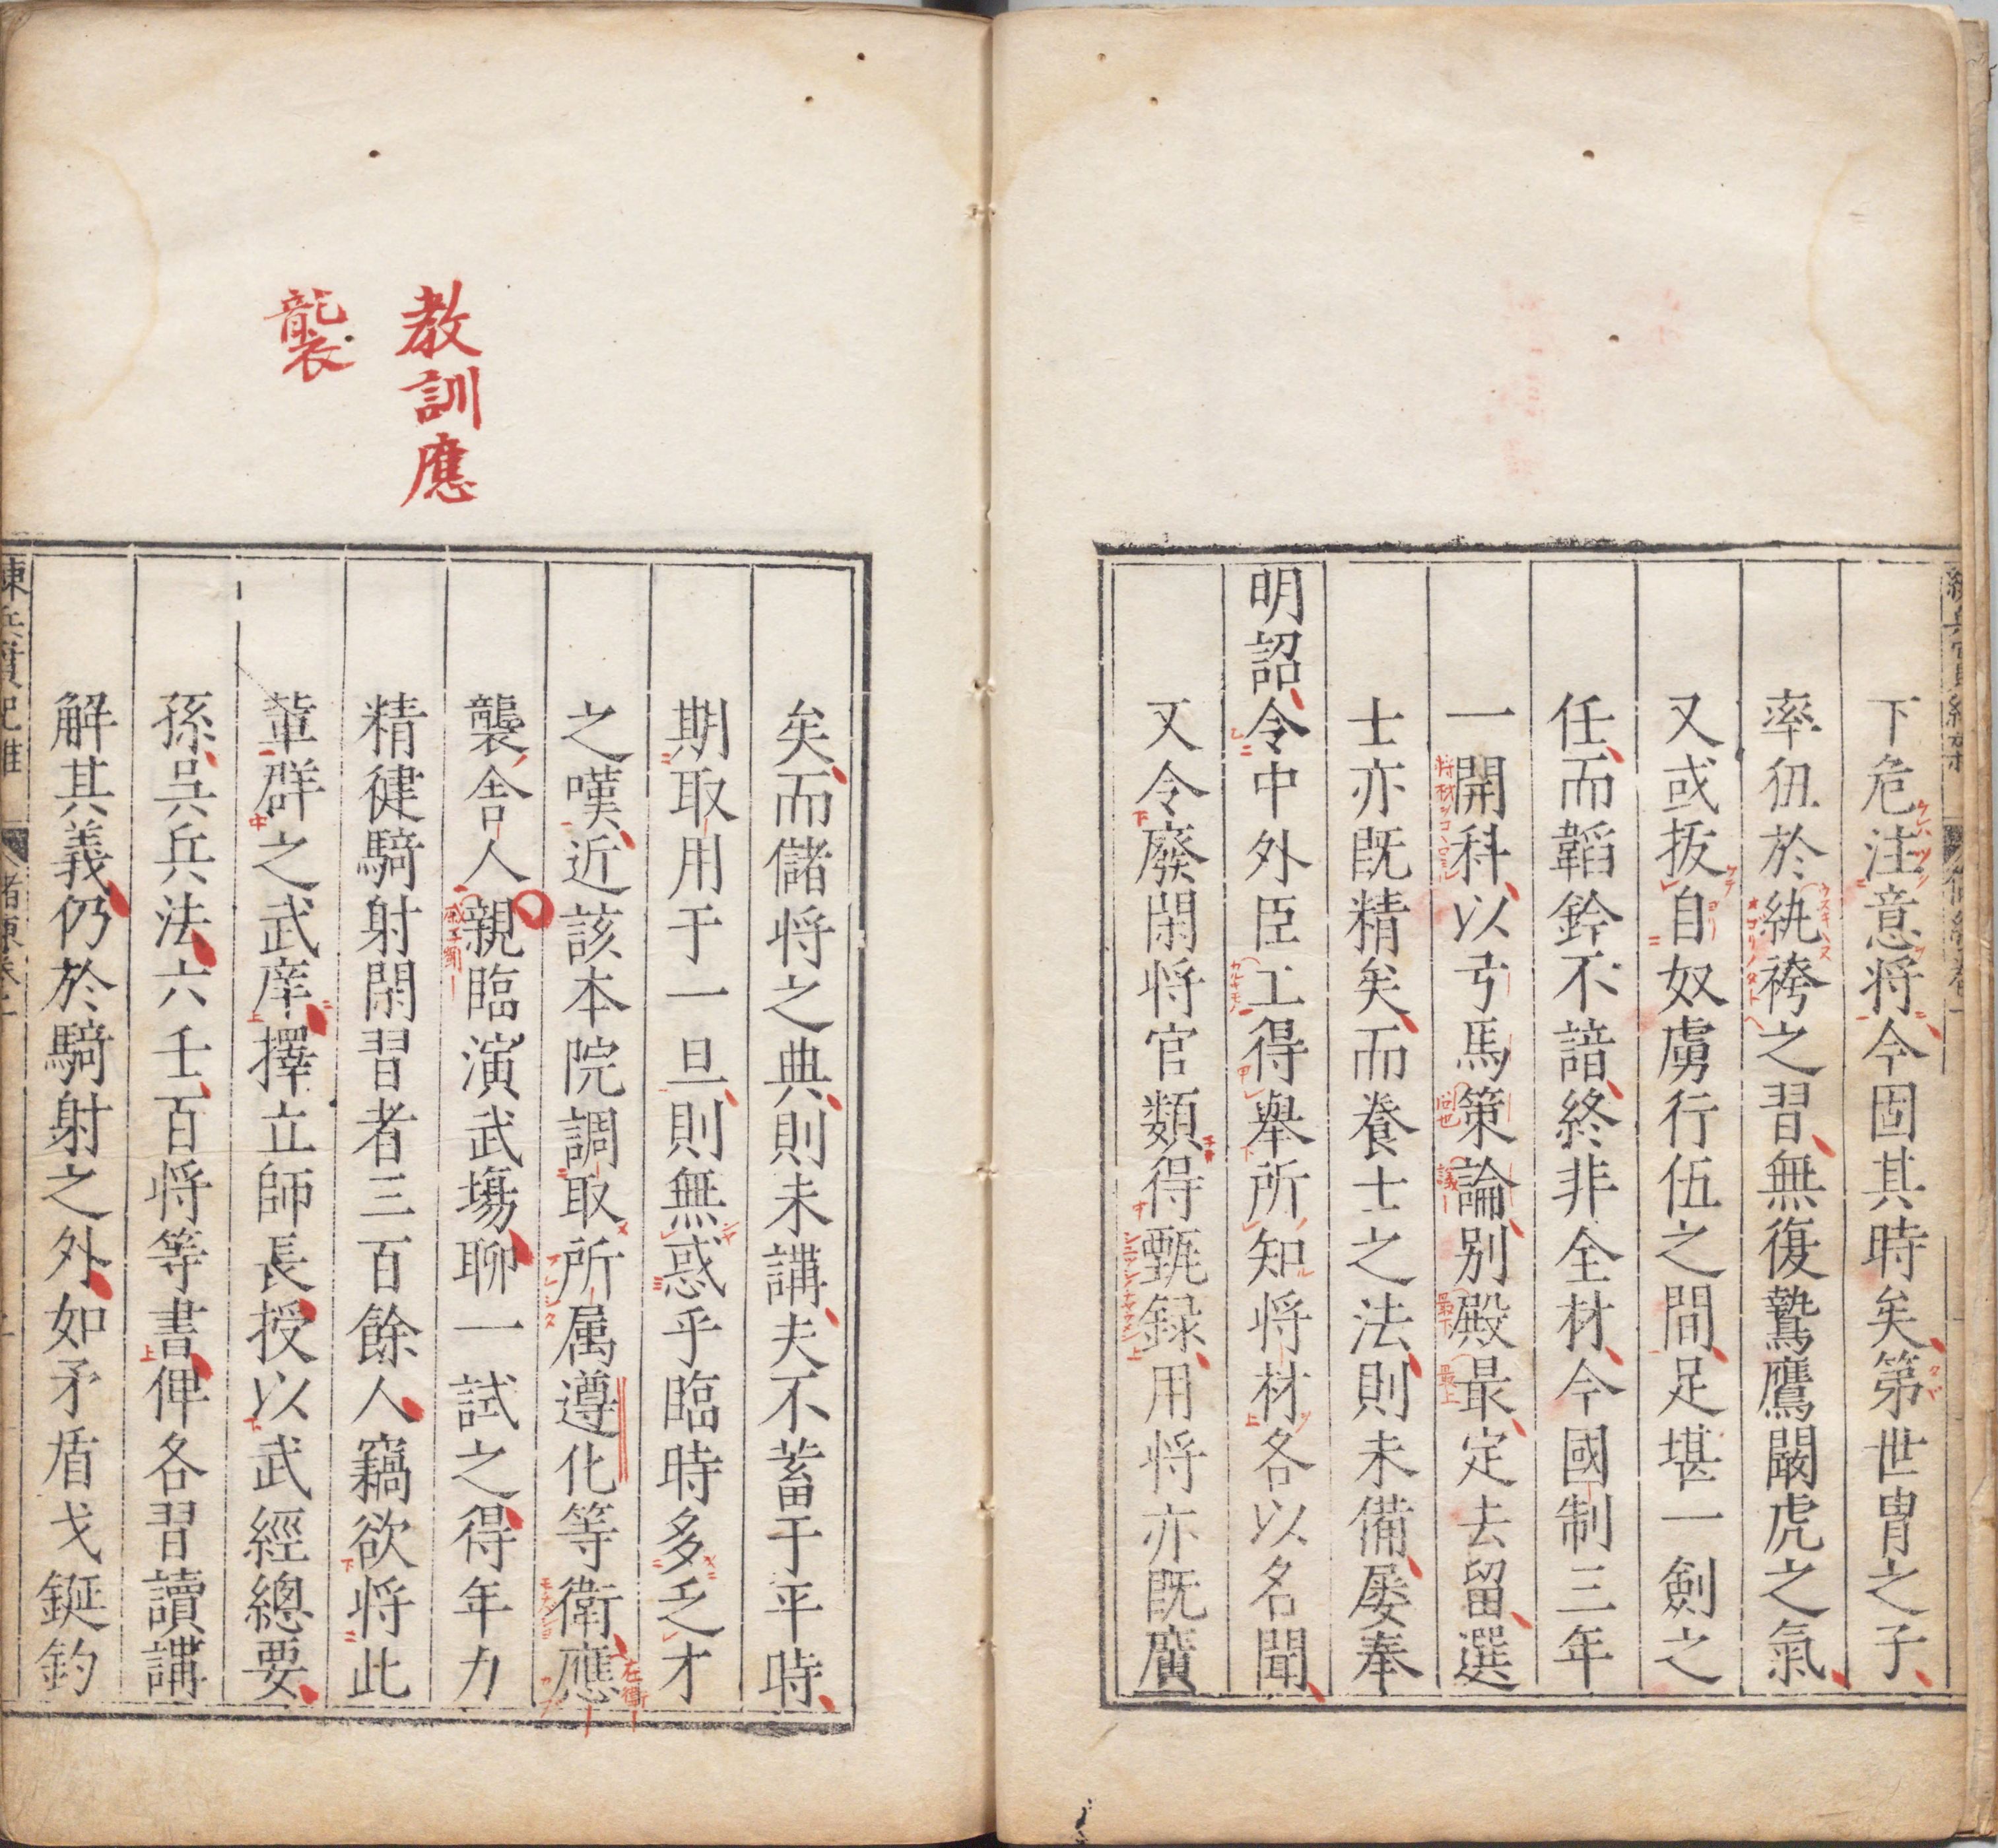 下危注意将今固其時矣第世胄之子
率狃於紈袴之習無復鷙鷹闞虎之氣
又或拔自奴虜行伍之間足堪一劍之
任而韜鈐不諳終非全材今國制三年
一開科以弓馬策論别殿最定去留選
士亦既精矣而養士之法則未備屡奉
明詔令中外臣工得舉所知将材各以名聞
又令廢閑将官類得甄録用将亦既廣
教訓應
襲
矣而儲将之典則未講夫不蓄于平時
期取用于一旦則無惑乎臨時多乏才
之嘆近該本院調取所属遵化等衛應
襲舎人親臨演武塲聊一試之得年力
精健騎射閑習者三百餘人竊欲将此
軰群之武庠擇立師長授以武經總要
孫吴兵法六壬百将等書俾各習讀講
解其義仍於騎射之外如矛盾戈鋋釣